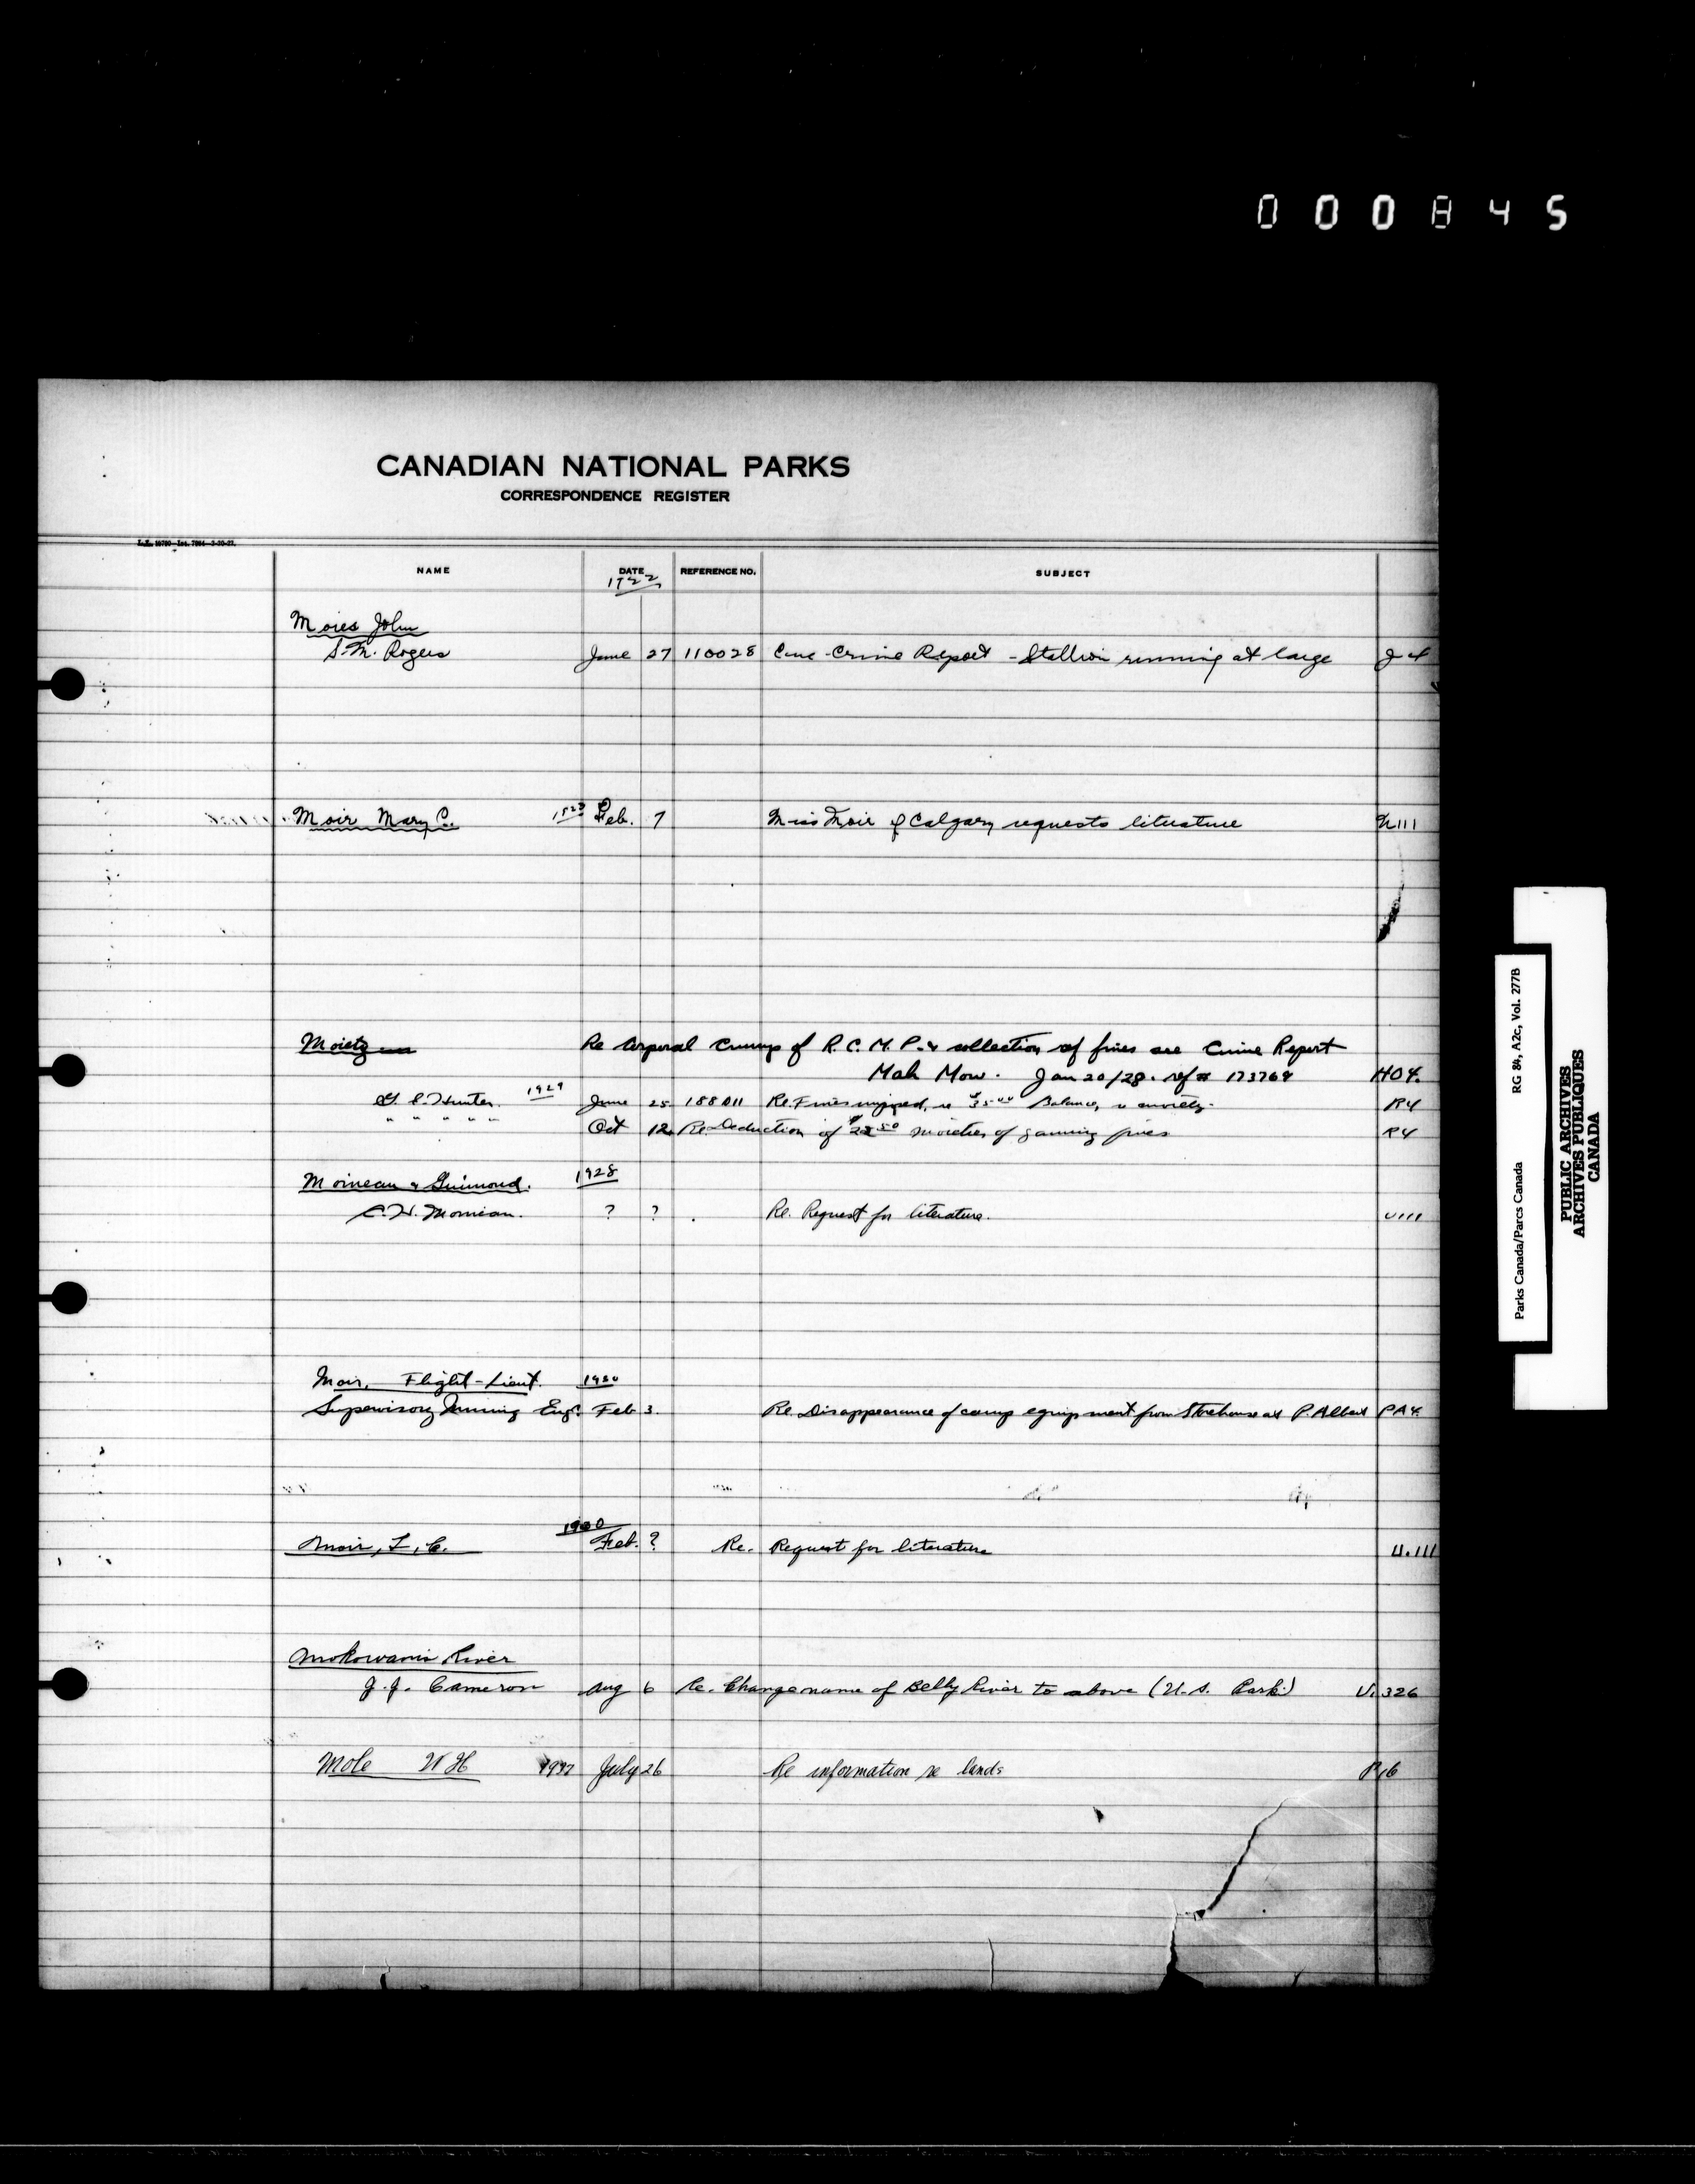 000845
CANADIAN NATIONAL PARKS
CORRESPONDENCE REGISTER
NAME DATE REFERENCE NO. SUBJECT
1922
Moies John
S.M. Rogers June 27 110028 Crime Report - Stallion running at large J4
Moir Mary C. 1923 Feb. 7 Miss Moir of Calgary requests literature U111
Re Corporal Crump of R.C.M.P. & collection of fines see Crime Report
Mah Mow. Jan 20/28. ref # 173769 HO4.
Hunter. 1929 June 25 188011 Re. Fines Balance, R4
" " " " " Oct 12 Re Deduction of moieties of gaming fines R4
Moineau & Guimond. 1928
C.H. Moineau. ? ? Re. Request for literature. U111
Moir, Flight-Lieut. 1930
Supervisory Mining Engr. Feb 3. Re. Disappearance of camp equipment from Storehouse at P. Albert PA4.
1930
Moir, L, C. Feb. ? Re. Request for literature U.111
Mokowanis River
J.J. Cameron Aug 6 Re. Change name of Belly River to above (U.S. Park) U.326
Mole WH July 26 Re information re lands P16
Parks Canada/Parcs Canada RG 84, A2c, Vol. 2778
PUBLIC ARCHIVES
ARCHIVES PUBLIQUES
CANADA